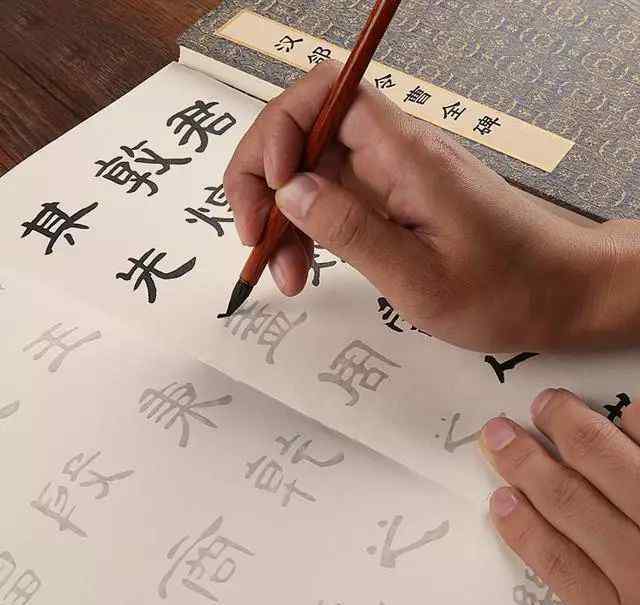 汉郃令曹全碑
君
敦煌
其先蓋周之
王秉乾之
殷商